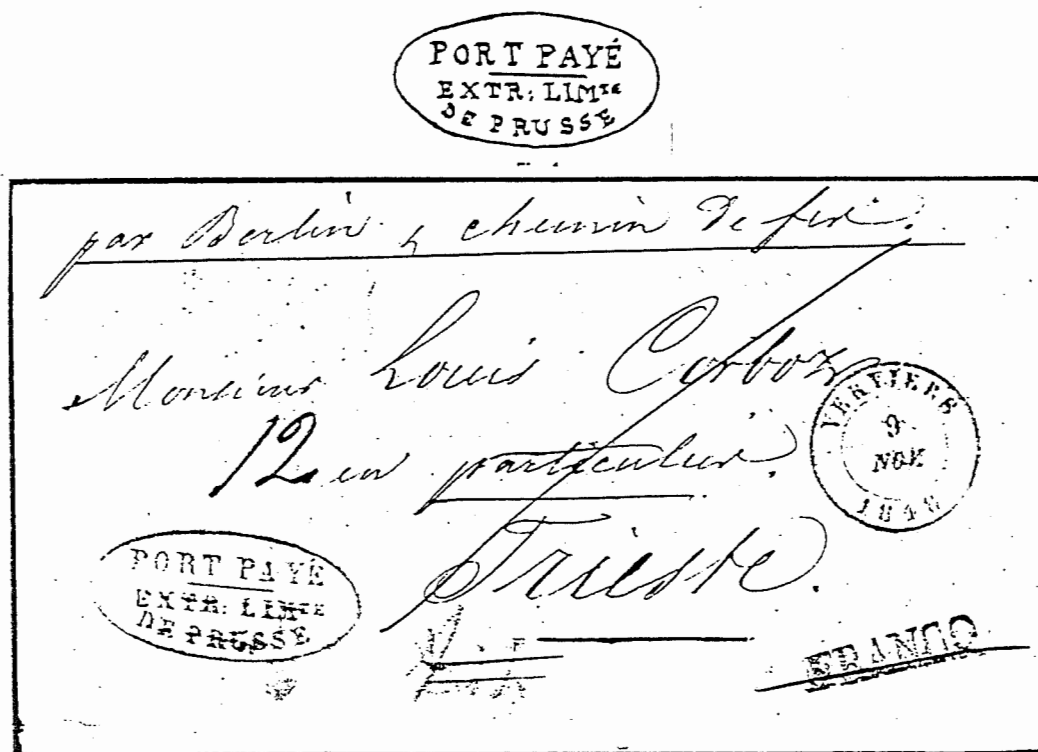 PORT PAYÉ
EXTR: LIMTE
DE PRUSSE
par Berlin & chemin de fer.
Monsieur Louis Corboz
12 en particulier.
VERVIERS
9
NOV
1848
Trieste.
PORT PAYÉ
EXTR: LIMTE
DE PRUSSE
FRANCO